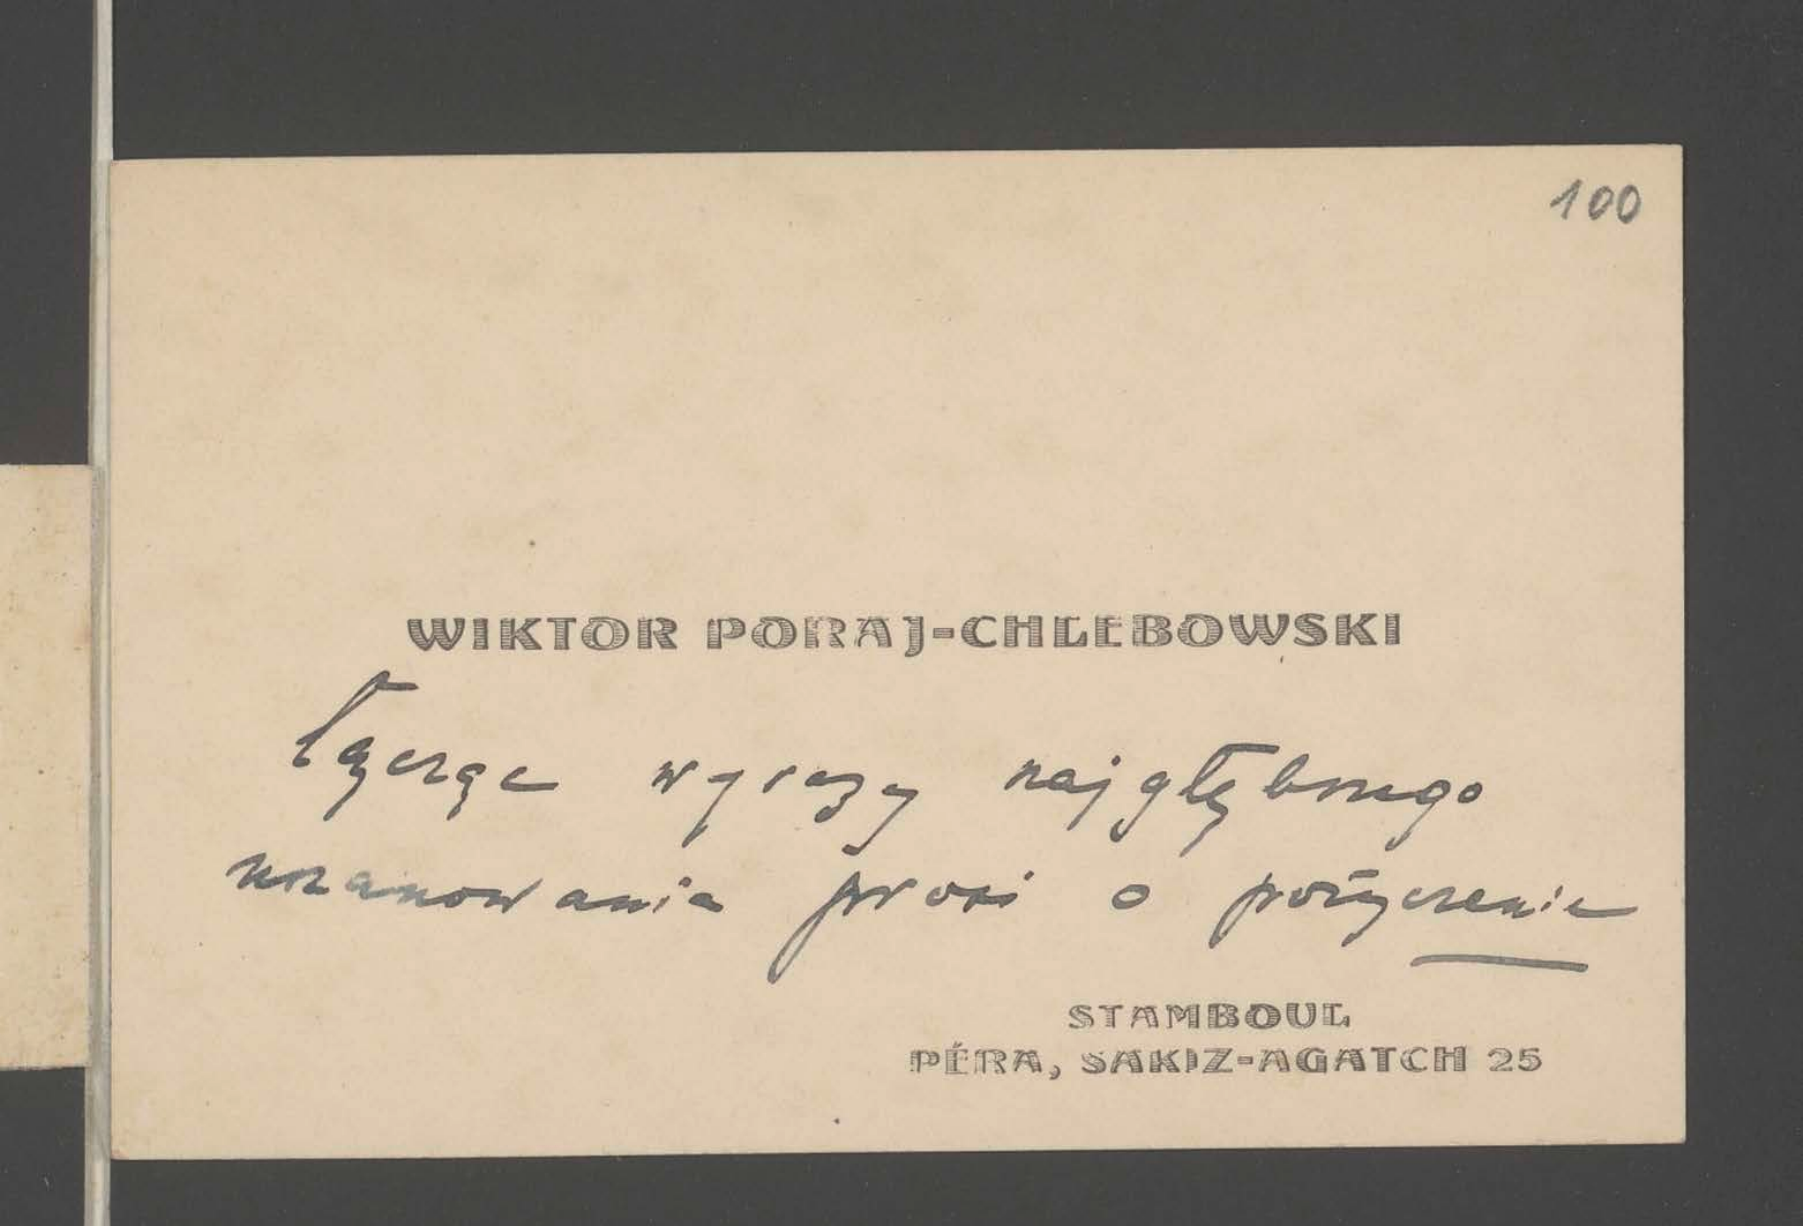 100
WIKTOR PORAJ-CHLEBOWSKI
Łącząc wyrazy najgłębszego
uszanowania prosi o pożyczenie
STAMBOUL
PÉRA, SAKIZ-AGATCH 25